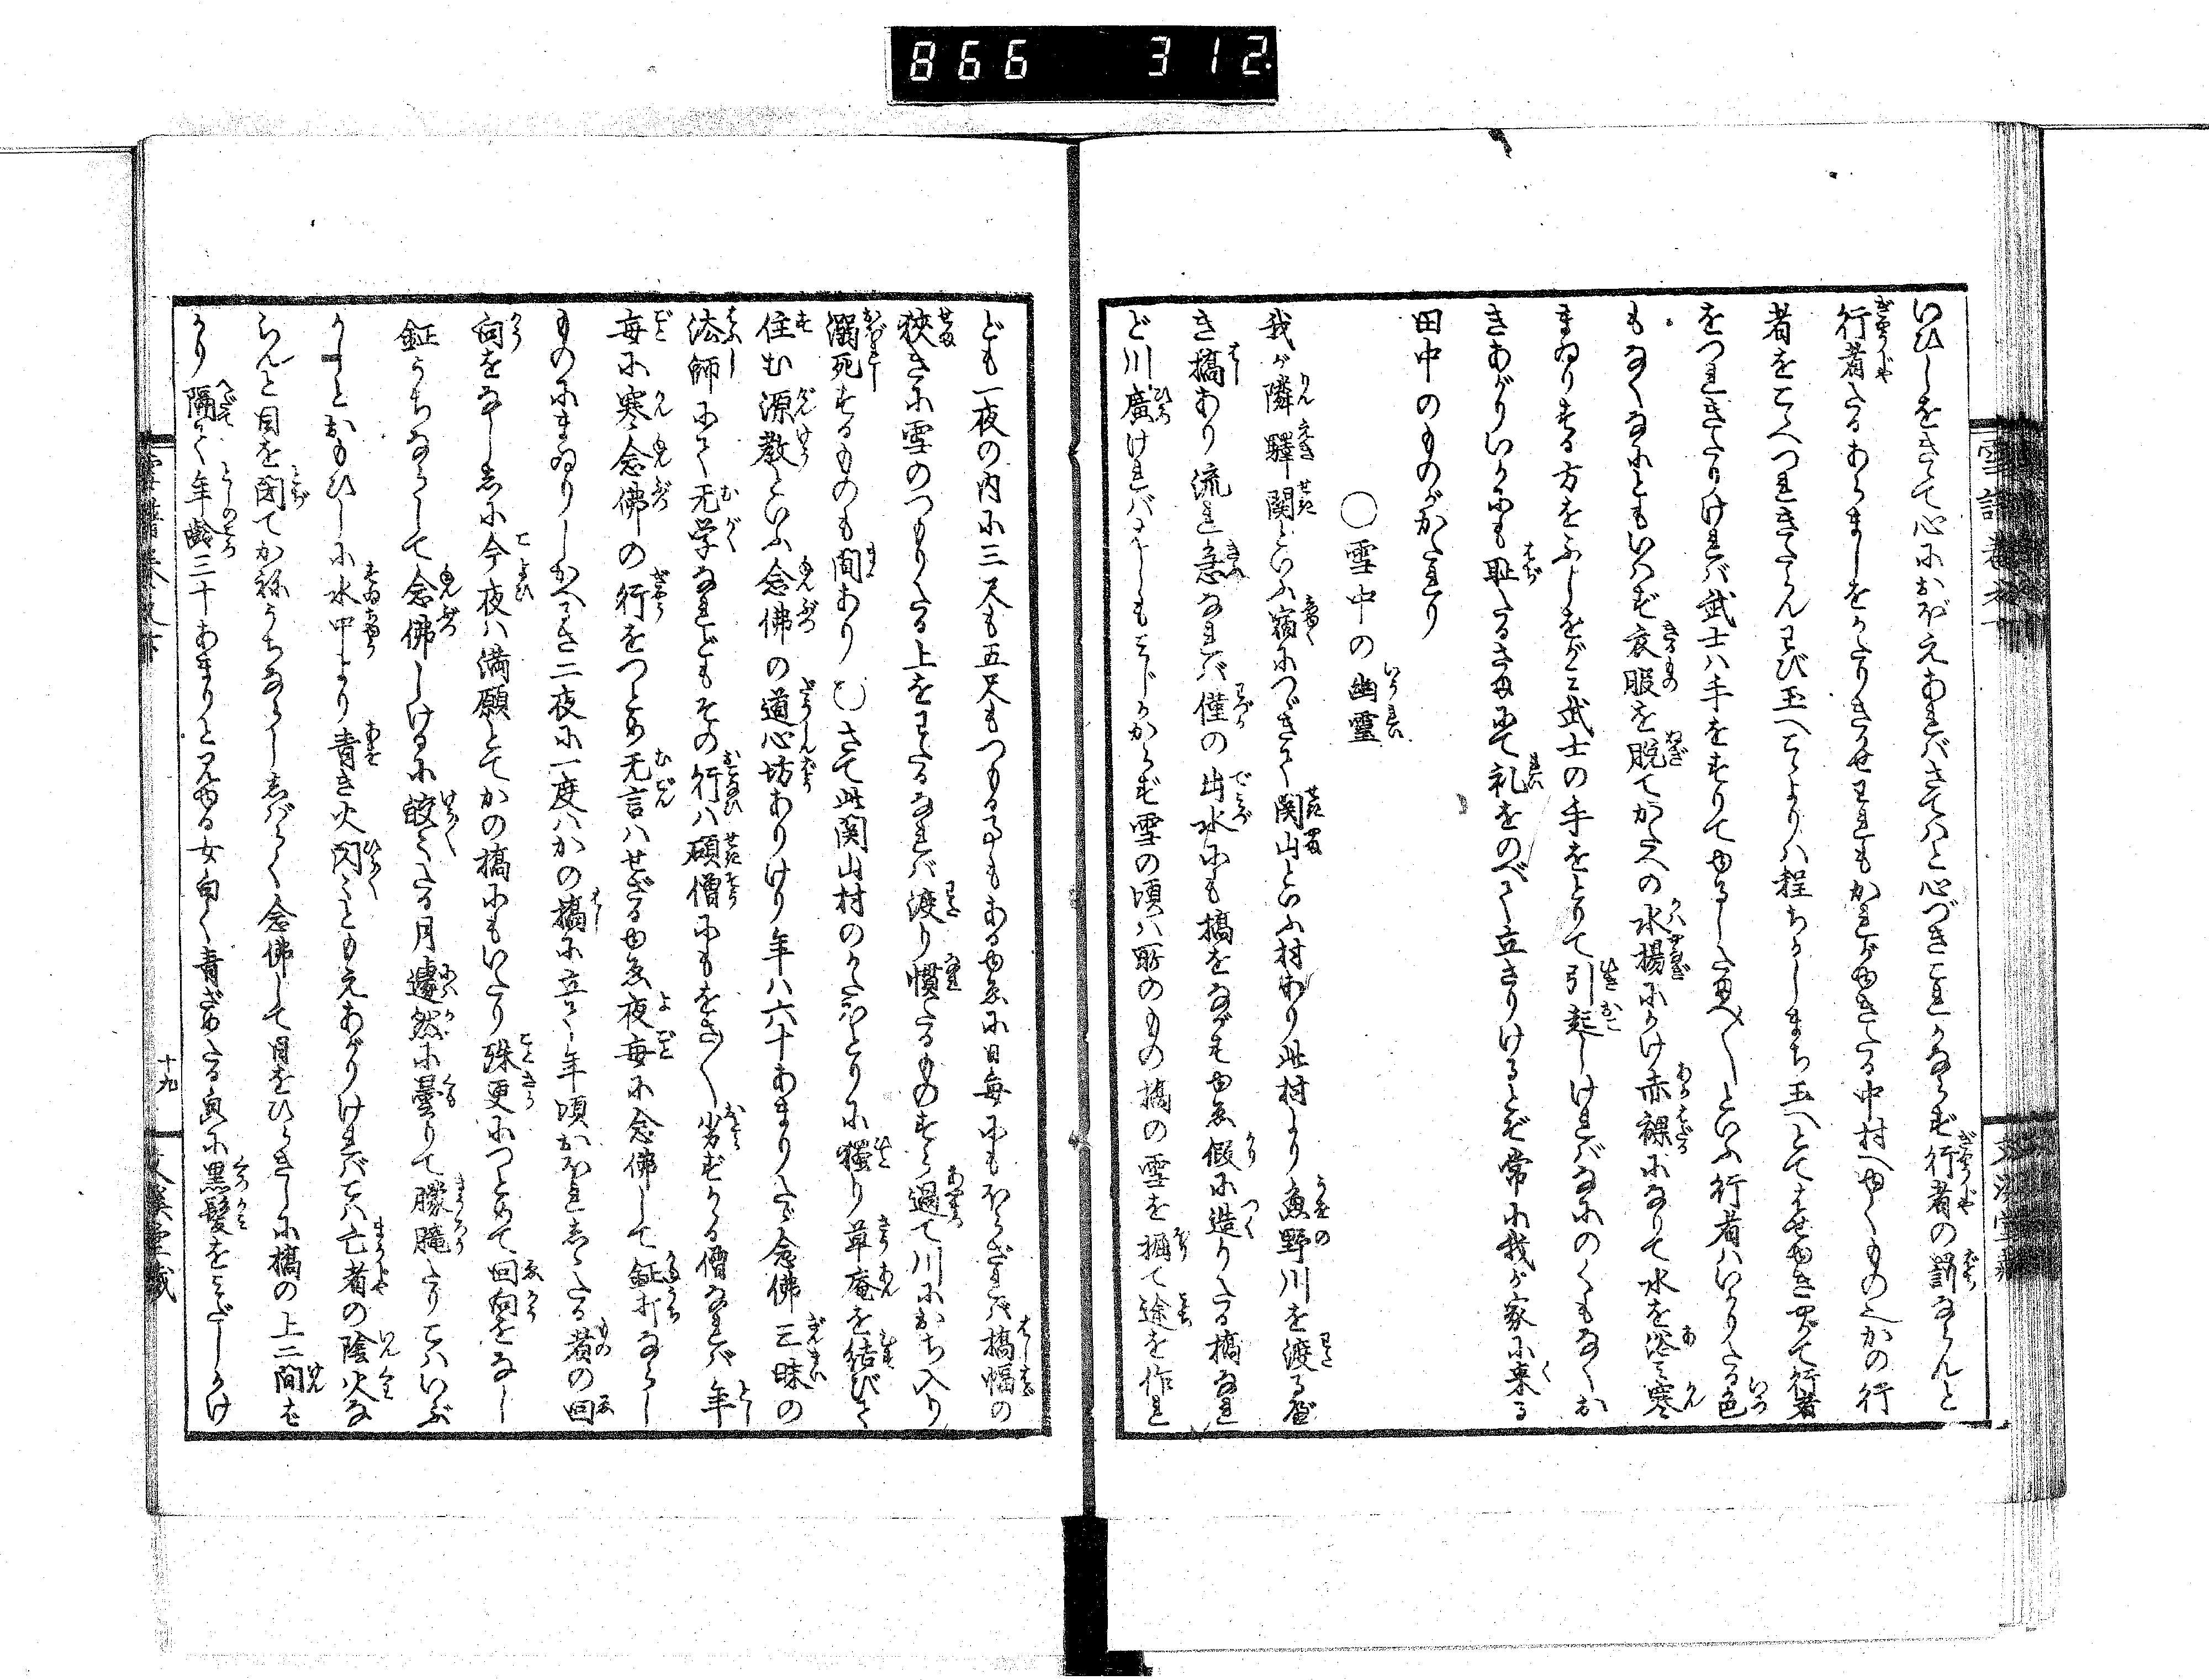 866 312
いひしをきゝて心におぼえあればさてはと心づきこれかならず行者の罰ならんと
行者たるあらましをかたりきかせわれもかれがゆきたる中村へゆくもの也かの行
者をこゝへつれきたらんわび玉へこゝよりハ程ちかしまち玉へとてはせゆきやがて行者
をつれきたりけれバ武士ハ手をすりてゆるしたまへ〳〵といふ行者ハいかりたる色
もなくなにともいはず衣服を脱てかたへの水揚にかけ赤裸になりて水を浴ミ寒
まゐりする方をふしをがミ武士の手をとりて引起しけれバなにのくもなくお
きあがりいかにも耻たるさまにて礼をのべて立さりけるとぞ常に我が家に来る
田中のものがかたれり
○雪中の幽霊
我が隣驛関といふ宿につゞきて関山といふ村あり此村より魚野川を渡るべ
き橋あり流れ急なれバ僅の出水にも橋をながすゆゑ假に造りたる橋なれ
ど川廣けれバはしもみじかからず雪の頃ハ所のもの橋の雪を掘て途を作れ
ども一夜の内に三尺も五尺もつもる事もあるゆゑに日毎にもほらざれバ橋幅の
狹きに雪のつもりたる上をわたるなれバ渡り慣たるものすら過て川におち入り
溺死するものも間あり○さて此関山村のかたほとりに独り草庵を結びて
住む源教といふ念佛の道心坊ありけり年ハ六十あまりたゞ念佛三昧の
法師にて无学なれどもその行ハ碩僧にもをさ〳〵劣ずかゝる僧なれバ年
毎に寒念佛の行をつとめ无言ハせざるゆゑ夜毎に念佛して鉦打ならし
ものにまゐりしかへさに二夜に一度ハかの橋に立て年頃おぼれしゝたる者の回
向をなししに今夜ハ満願とてかの橋にもいたり殊更につとめて回向をなし
鉦うちならして念佛しけるに皎々たる月遽然に曇りて朦朧たりこハいぶ
かしとおもひしに水中より青き火閃々ともえあがりけれバこハ亡者の陰火な
らんと目を閉てかねうちならししばらく念佛して目をひらきしに橋の上二間ば
かり隔て年齢三十あまりと見ゆる女白く青ざめたる皃に黒髪をみだしかけ
十九